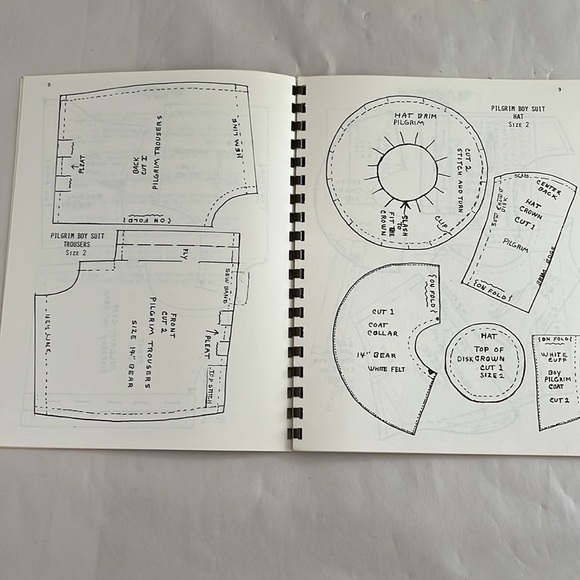 8
HEM LINE
PLEAT
BACK
CUT 1
PILGRIM TROUSERS
(ON FOLD)
PILGRIM BOY SUIT
TROUSERS
Size 2
FLY
SEW BAND
PLEAT
TOP STITCH
HEM LINE
FRONT
CUT 2
PILGRIM TROUSERS
SIZE 14" BEAR
9
PILGRIM BOY SUIT
HAT
Size 2
HAT BRIM
PILGRIM
CUT 2
STITCH AND TURN
CLIP
SLASH
TO
FIT THE
CROWN
SEAM
CENTER
BACK
SEW
DISK
HAT
CROWN
CUT 1
PILGRIM
EDGE
(ON FOLD)
(ON FOLD)
CUT 1
COAT
COLLAR
14" BEAR
WHITE FELT
HAT
TOP OF
DISK CROWN
CUT 1
SIZE 2
(ON FOLD)
WHITE
CUFF
BOY
PILGRIM
COAT
CUT 2